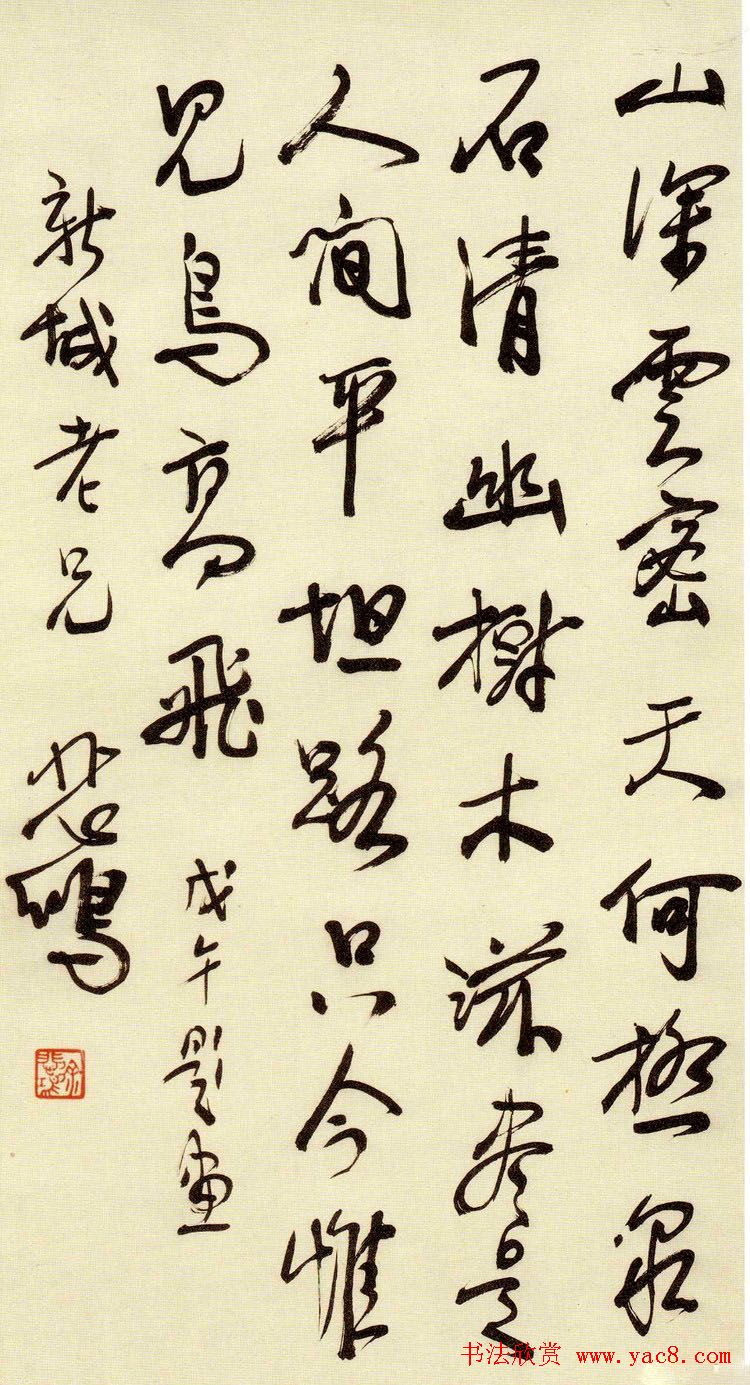 山深雲密天何極泉
石清幽樹木滋盡是
人間平坦路只今惟
見鳥高飛 戊午題畫
新城老兄 悲鴻
書法欣赏 www.yac8.com